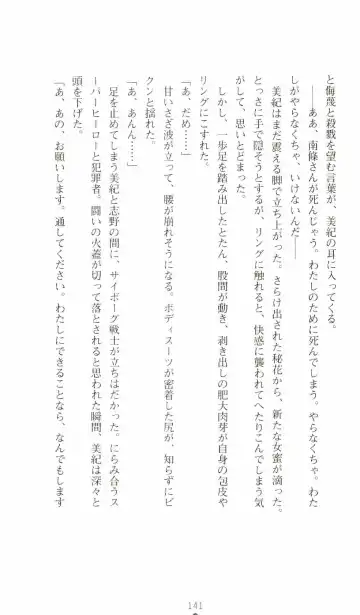 と侮蔑と殺戮を望む言葉が、美紀の耳に入ってくる。
――ああ、南條さんが死んじゃう。わたしのために死んでしまう。やらなくちゃ。わた
しがやらなくちゃ、いけないんだ――
美紀はまだ震える脚で立ち上がった。さらけ出された秘花から、新たな女蜜が滴った。
とっさに手で隠そうとするが、リングに触れると、快感に襲われてへたりこんでしまう気
がして、思いとどまった。
しかし、一歩足を踏み出したとたん、股間が動き、剥き出しの肥大肉芽が自身の包皮や
リングにこすれた。
「あ、だめ……」
甘いさざ波が立って、腰が崩れそうになる。ボディスーツが密着した尻が、知らずにビ
クンと揺れた。
「あ、あんん……」
足を止めてしまう美紀と志野の間に、サイボーグ戦士が立ちはだかった。にらみ合うス
ーパーヒーローと犯罪者。闘いの火蓋が切って落とされると思われた瞬間、美紀は深々と
頭を下げた。
「あ、あの、お願いします。通してください。わたしにできることなら、なんでもします
141